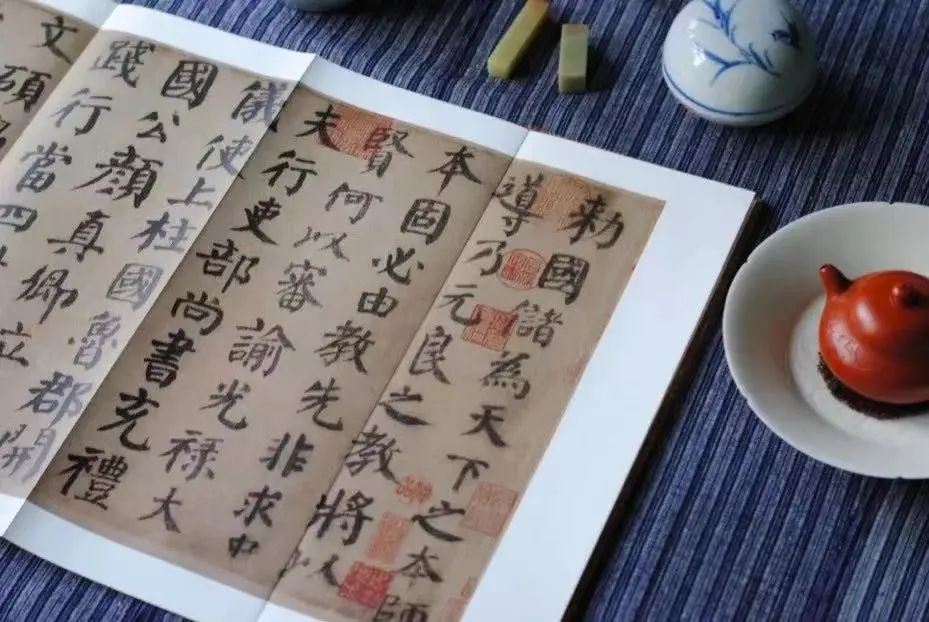 勑國儲為天下之本師
導乃元良之教將以
本固必由教先非求中
賢何以審諭光祿大
夫行吏部尚書充禮
儀使上柱國魯郡開
國公顏真卿立
踐行當四
文碩